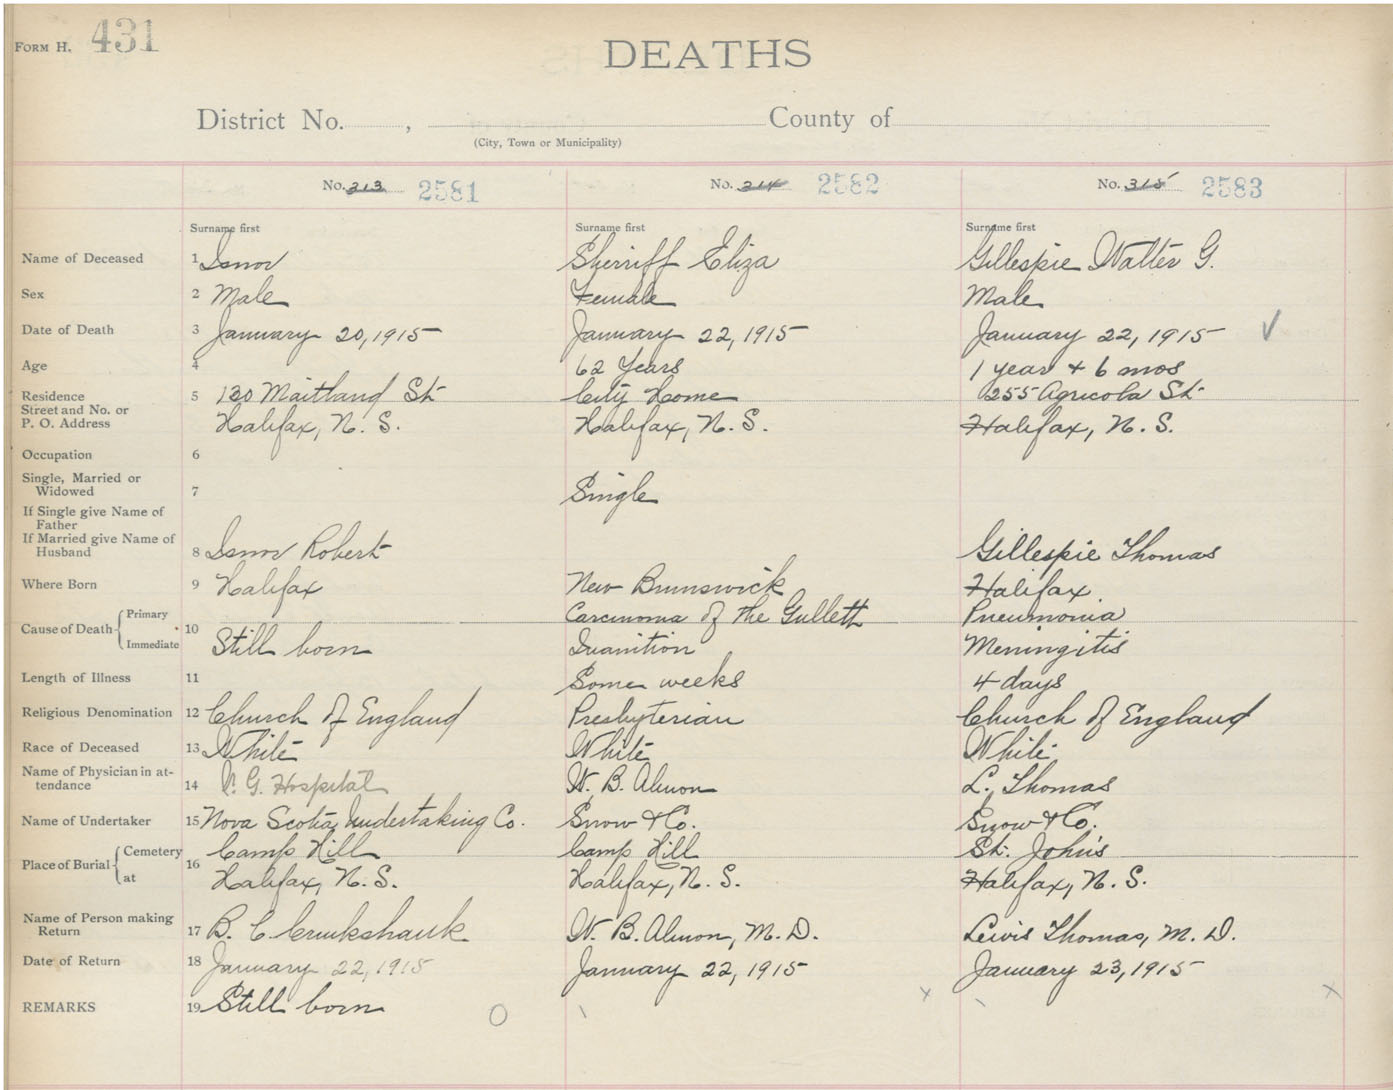 FORM H. 431
DEATHS
District No. , County of
(City, Town or Municipality)
No. 313 2581 No. 314 2582 No. 315 2583
Surname first Surname first Surname first
Name of Deceased 1 Isnor Sherriff Eliza Gillespie Walter G.
Sex 2 Male Female Male
Date of Death 3 January 20, 1915 January 22, 1915 January 22, 1915 ✓
Age 4 62 Years 1 year + 6 mos
Residence 5 130 Maitland St. City Home 255 Agricola St.
Street and No. or
P. O. Address Halifax, N. S. Halifax, N. S. Halifax, N. S.
Occupation 6
Single, Married or
Widowed 7 Single
If Single give Name of
Father
If Married give Name of
Husband 8 Isnor Robert Gillespie Thomas
Where Born 9 Halifax New Brunswick Halifax
Cause of Death Primary Carcinoma of the Gullett Pneumonia
10 Immediate Still born Inanition Meningitis
Length of Illness 11 Some weeks 4 days
Religious Denomination 12 Church of England Presbyterian Church of England
Race of Deceased 13 White White White
Name of Physician in at-
tendance 14 V. G. Hospital W. B. Almon L. Thomas
Name of Undertaker 15 Nova Scotia Undertaking Co. Snow & Co. Snow & Co.
Place of Burial Cemetery Camp Hill Camp Hill St. John's
16 at Halifax, N. S. Halifax, N. S. Halifax, N. S.
Name of Person making
Return 17 B. C. Cruikshank W. B. Almon, M. D. Lewis Thomas, M. D.
Date of Return 18 January 22, 1915 January 22, 1915 January 23, 1915
REMARKS 19 Still born